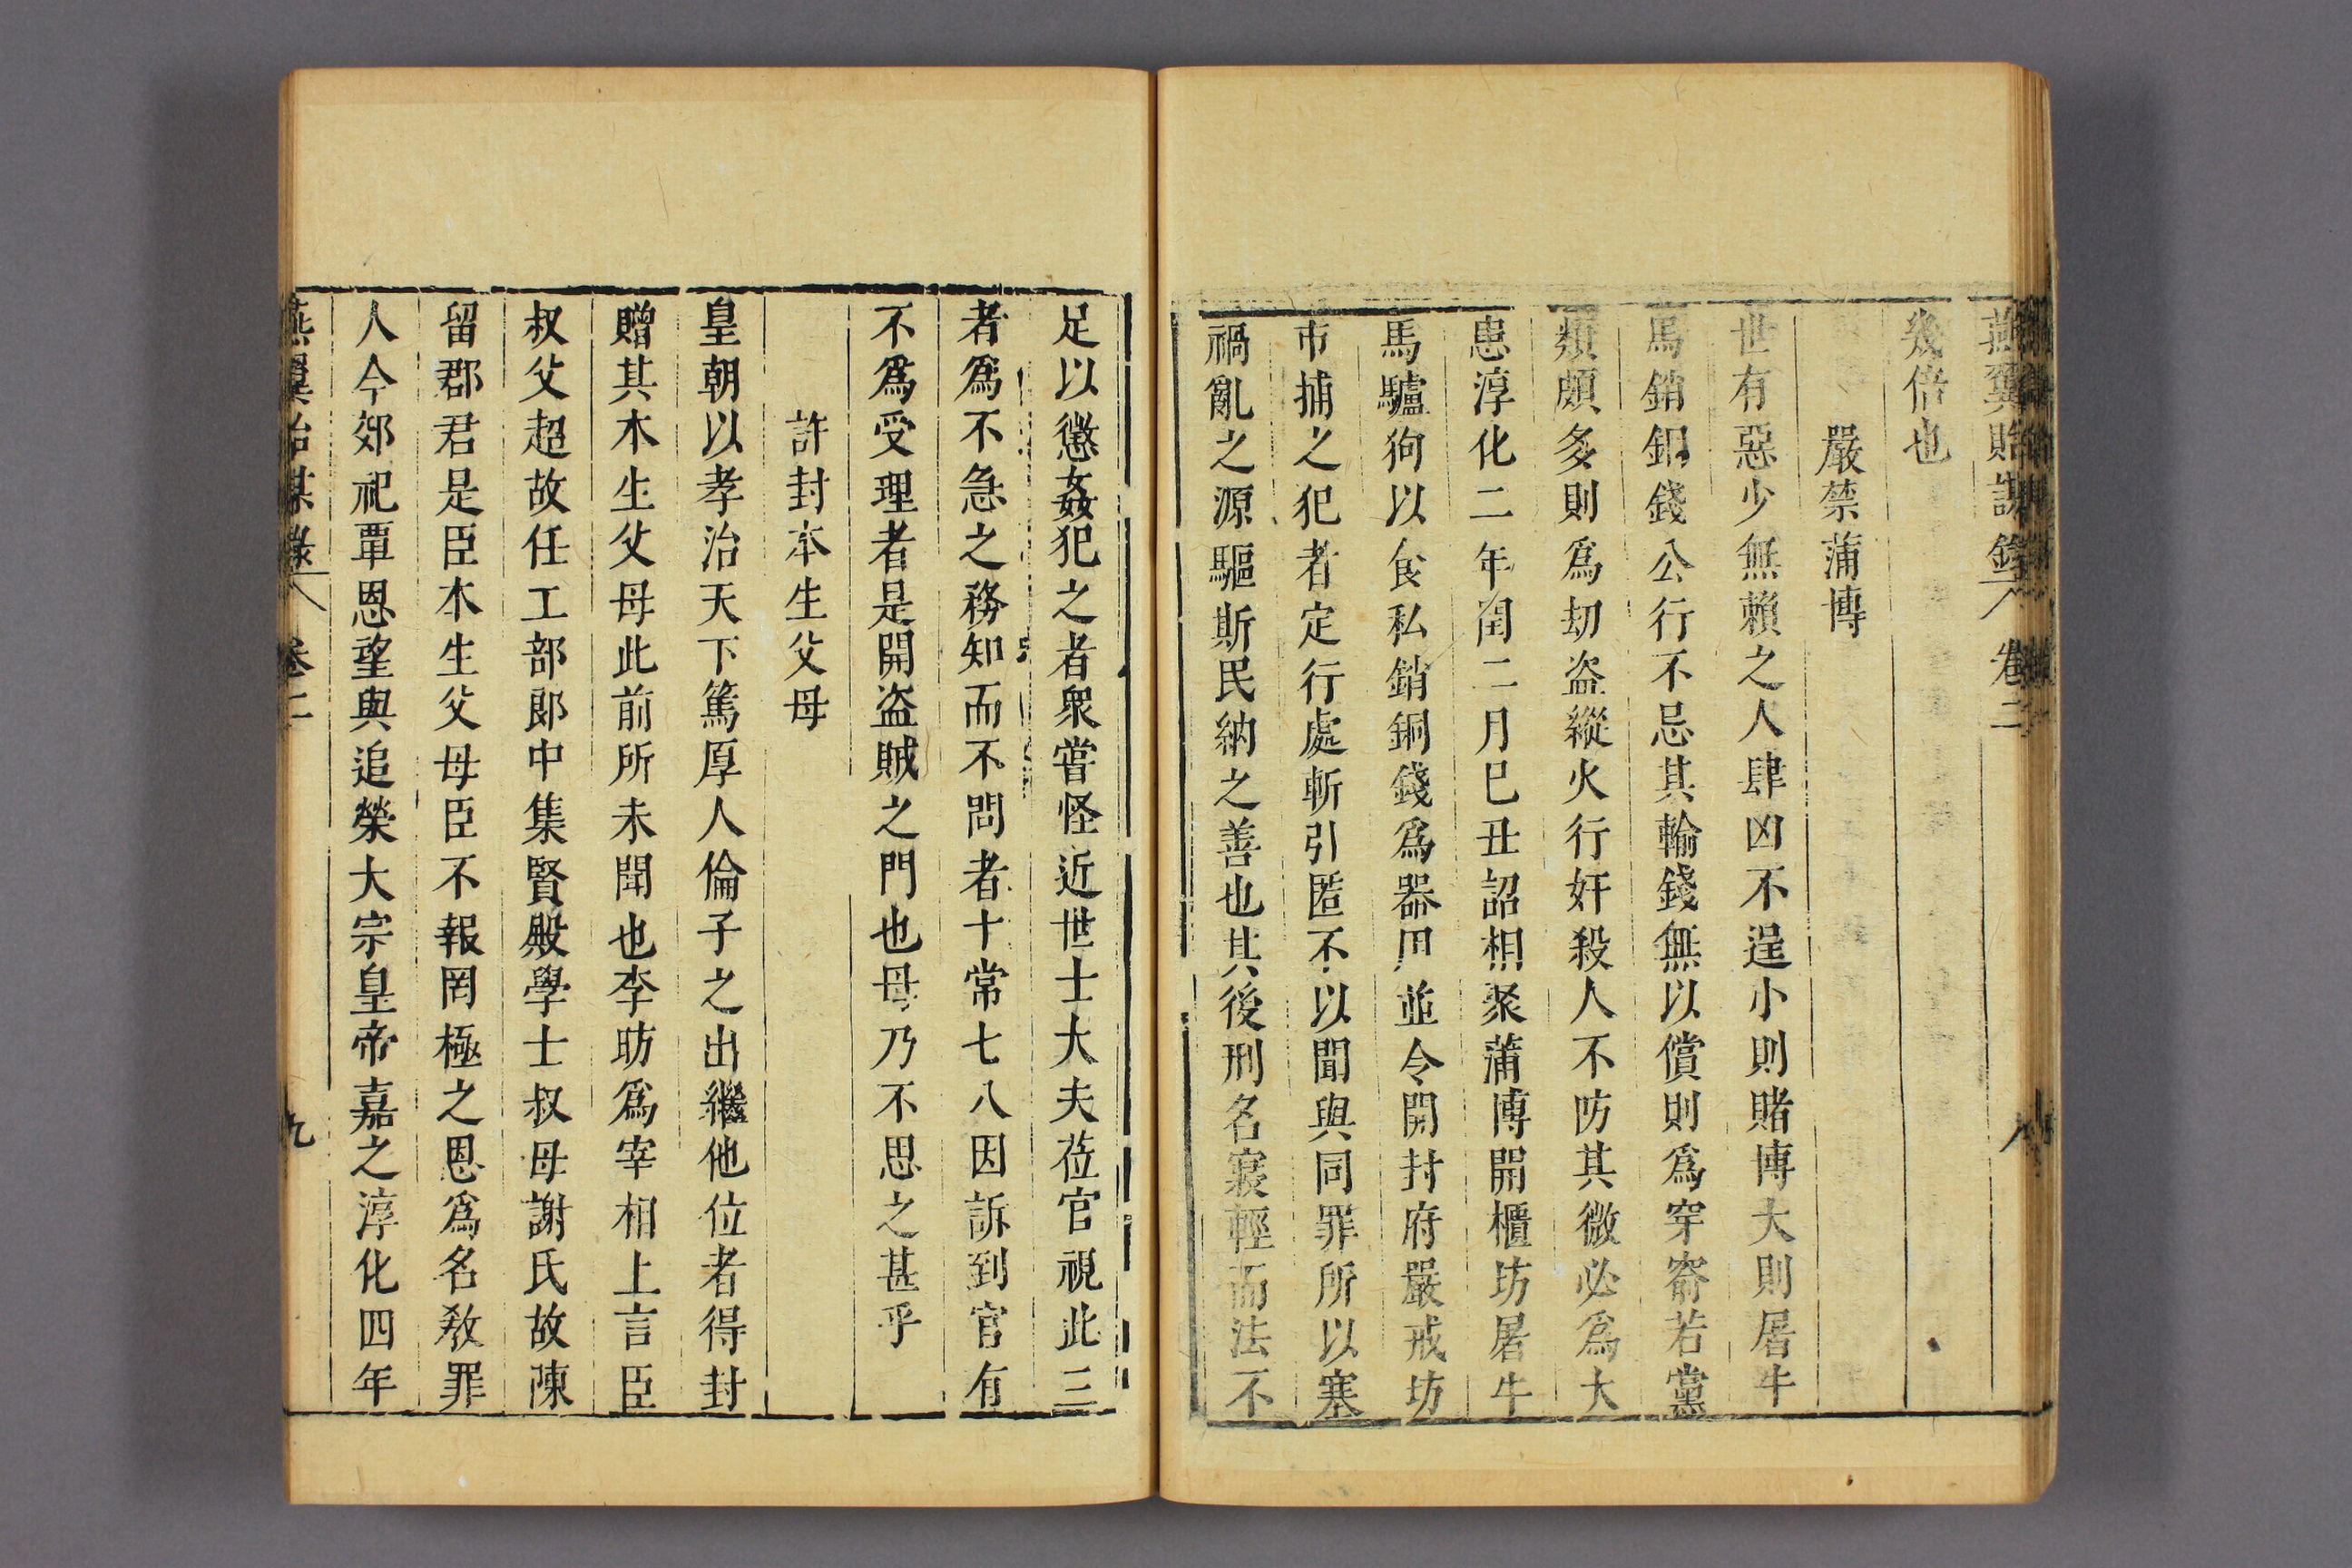 燕翼貽謀錄 卷二 八
幾倍也
嚴禁蒲博
世有惡少無賴之人肆凶不逞小則賭博大則屠牛
馬銷銅錢公行不忌其輸錢無以償則爲穿窬若黨
類頗多則爲刧盜縱火行奸殺人不防其微必爲大
患淳化二年閏二月巳丑詔相聚蒲博開櫃坊屠牛
馬驢狗以食私銷銅錢爲器用並令開封府嚴戒坊
市捕之犯者定行處斬引匿不以聞與同罪所以塞
禍亂之源驅斯民納之善也其後刑名寖輕而法不
足以懲姦犯之者衆嘗怪近世士大夫莅官視此三
者爲不急之務知而不問者十常七八因訴到官有
不爲受理者是開盜賊之門也毋乃不思之甚乎
許封本生父母
皇朝以孝治天下篤厚人倫子之出繼他位者得封
贈其木生父母此前所未聞也李昉爲宰相上言臣
叔父超故任工部郎中集賢殿學士叔母謝氏故陳
留郡君是臣木生父母臣不報罔極之恩爲名敎罪
人今郊祀覃恩望與追榮大宗皇帝嘉之淳化四年
燕翼貽謀錄 卷二 九